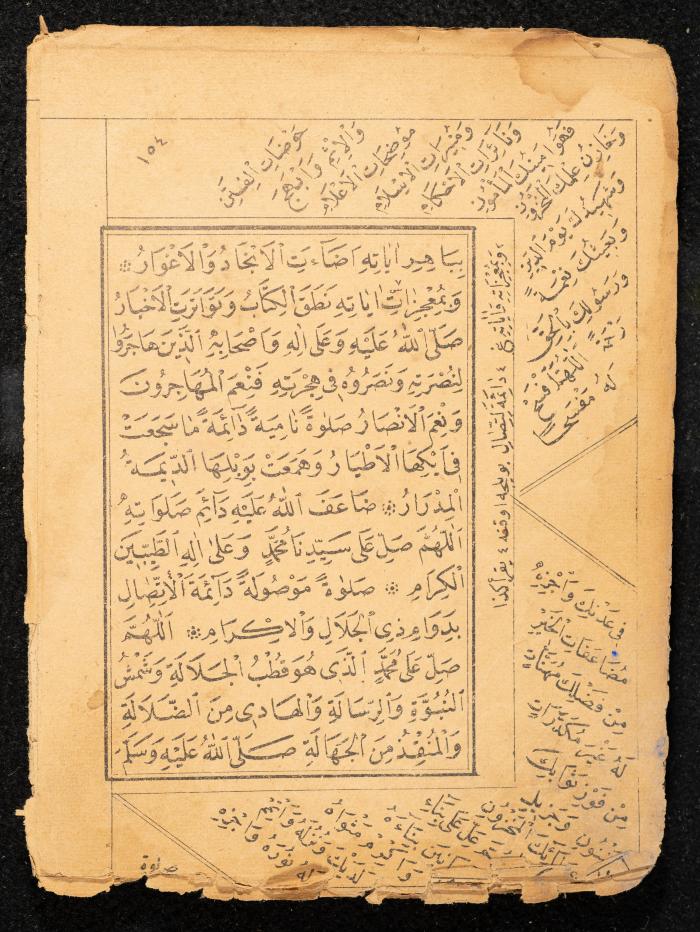 ١٥٤
بباهر اياته اضاءت الانجاد والاغوار
وبمعجزات اياته نطق الكتاب وتواترت الاخبار
صلى الله عليه وعلى اله واصحابه الذين هاجروا
لنصرته ونصروه في هجرته فنعم المهاجرون
ونعم الانصار صلوة نامية دائمة ما سجعت
في ايكها الاطيار وهمعت بوبلها الديمة
المدرار ضاعف الله عليه دائم صلواته
اللهم صل على سيدنا محمد وعلى اله الطيبين
الكرام صلوة موصولة دائمة الاتصال
بدوام ذي الجلال والاكرام اللهم
صل على محمد الذي هو قطب الجلالة وشمس
النبوة والرسالة والهادي من الضلالة
والمنقذ من الجهالة صلى الله عليه وسلم
خوضات الفتن
والاثم وابهج
موضحات الاعلام
ومنيرات الاسلام
ونائرات الاحكام
فهو امينك المأمون
وخازن علمك المخزون
وشهيدك يوم الدين
وبعيثك نعمة
ورسولك بالحق
رحمة اللهم افسح
في عدنك واجزه
مضاعفات الخير
من فضلك مهنئات
له غير مكدرات
من فوز ثوابك